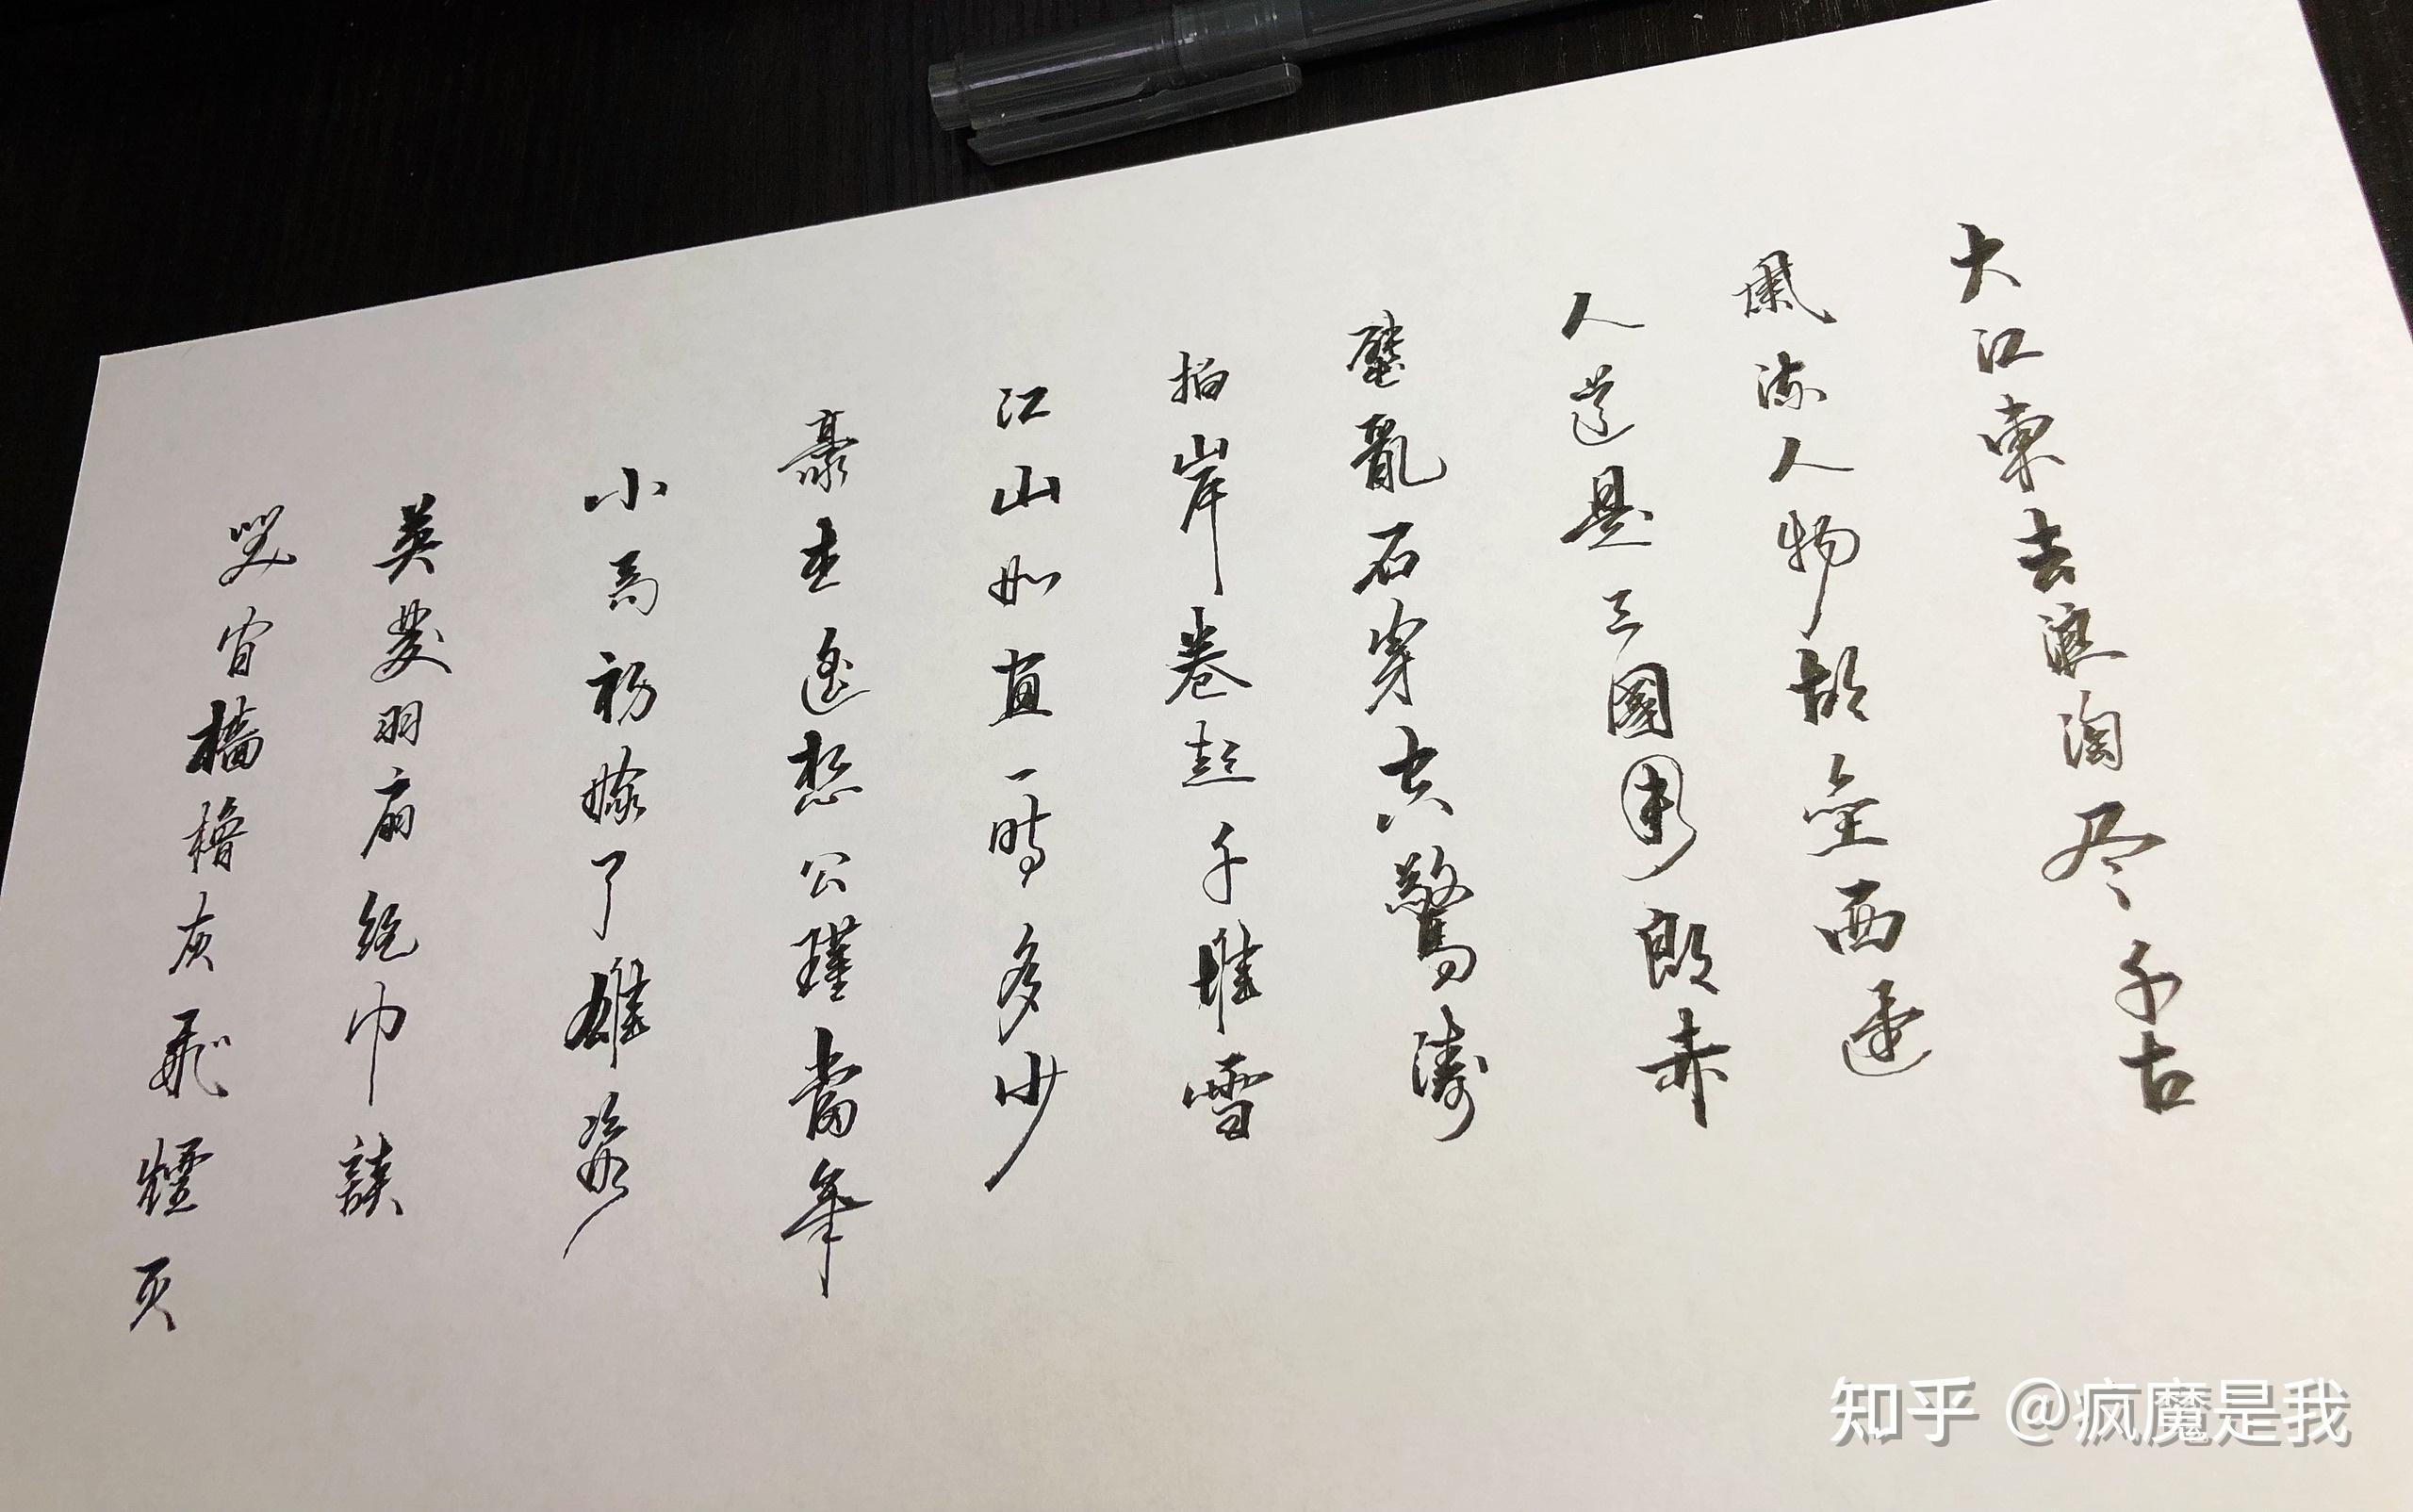 大江東去浪淘尽千古
風流人物故垒西邊
人道是三國周郎赤
壁亂石穿空驚濤
拍岸卷起千堆雪
江山如画一時多少
豪杰遙想公瑾當年
小喬初嫁了雄姿
英發羽扇綸巾談
笑間檣櫓灰飛煙灭
知乎 @疯魔是我